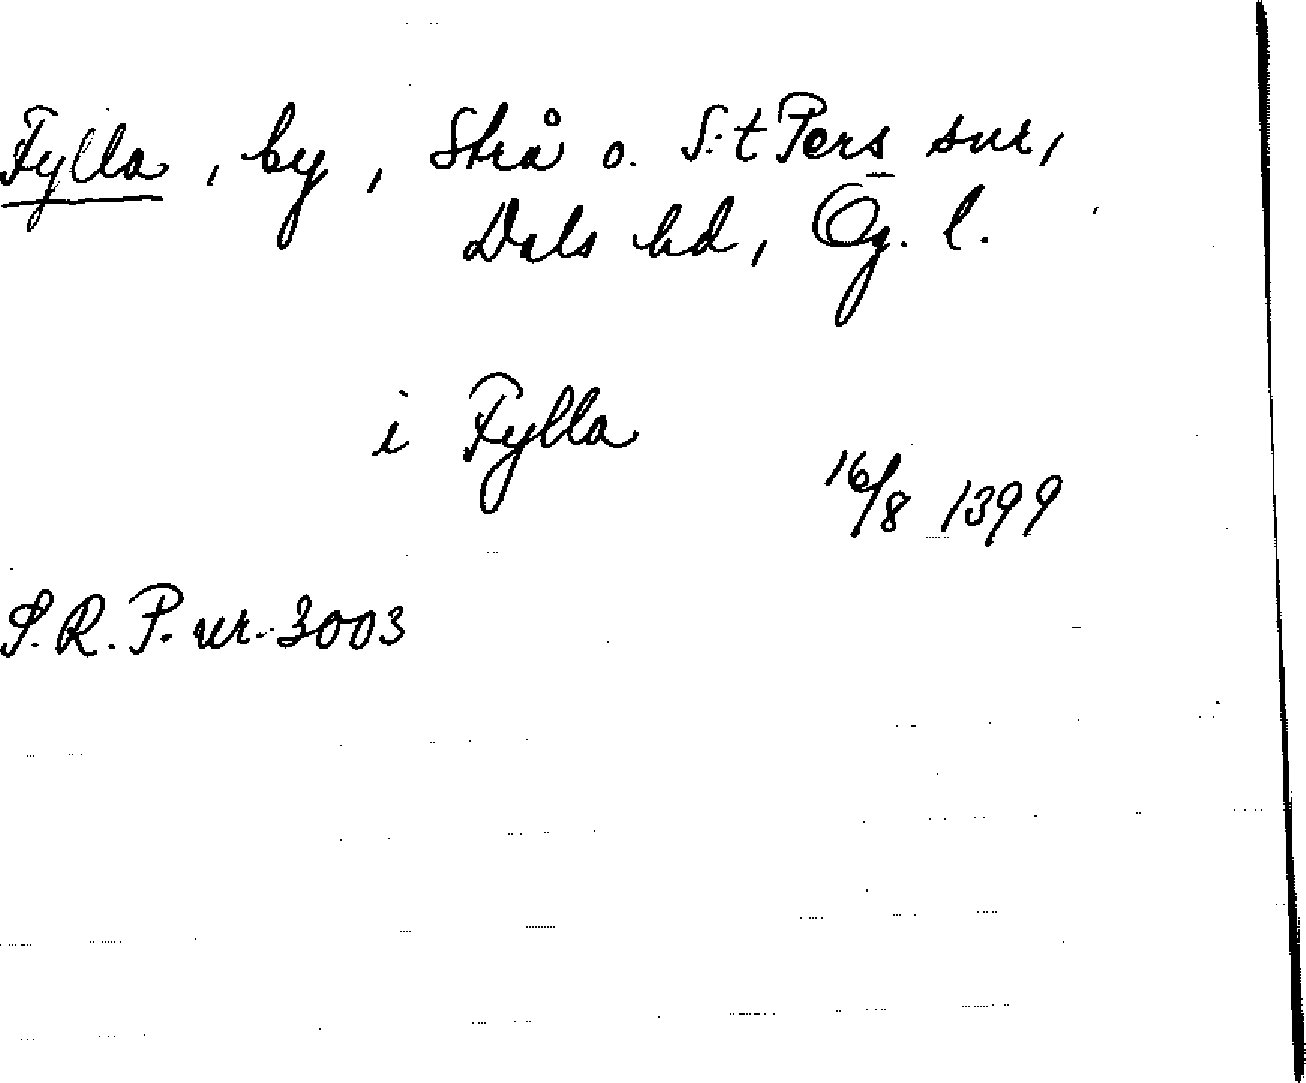 Fylla, by, Strå o. S:t Pers snr,
Dals hd, Ög. l.
i Fylla
16/8 1399
S.R.P. nr. 3003